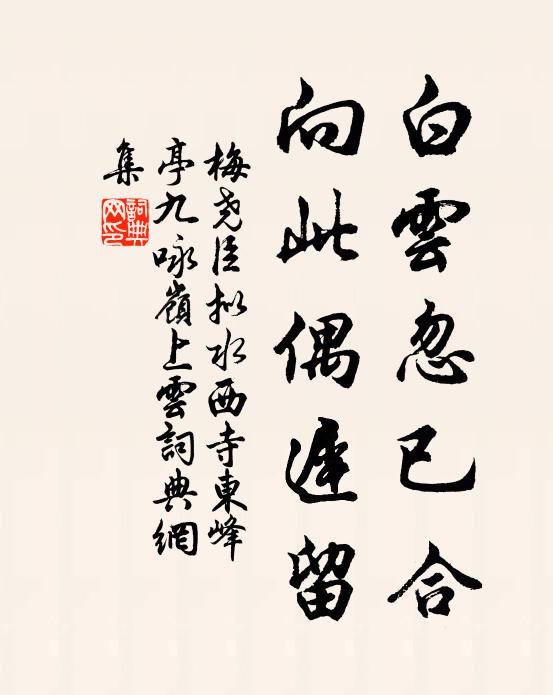 白雲忽已合
向此偶遲留
梅堯臣拟水西寺東峰
亭九咏嶺上雲詞典網
集
詞典網印